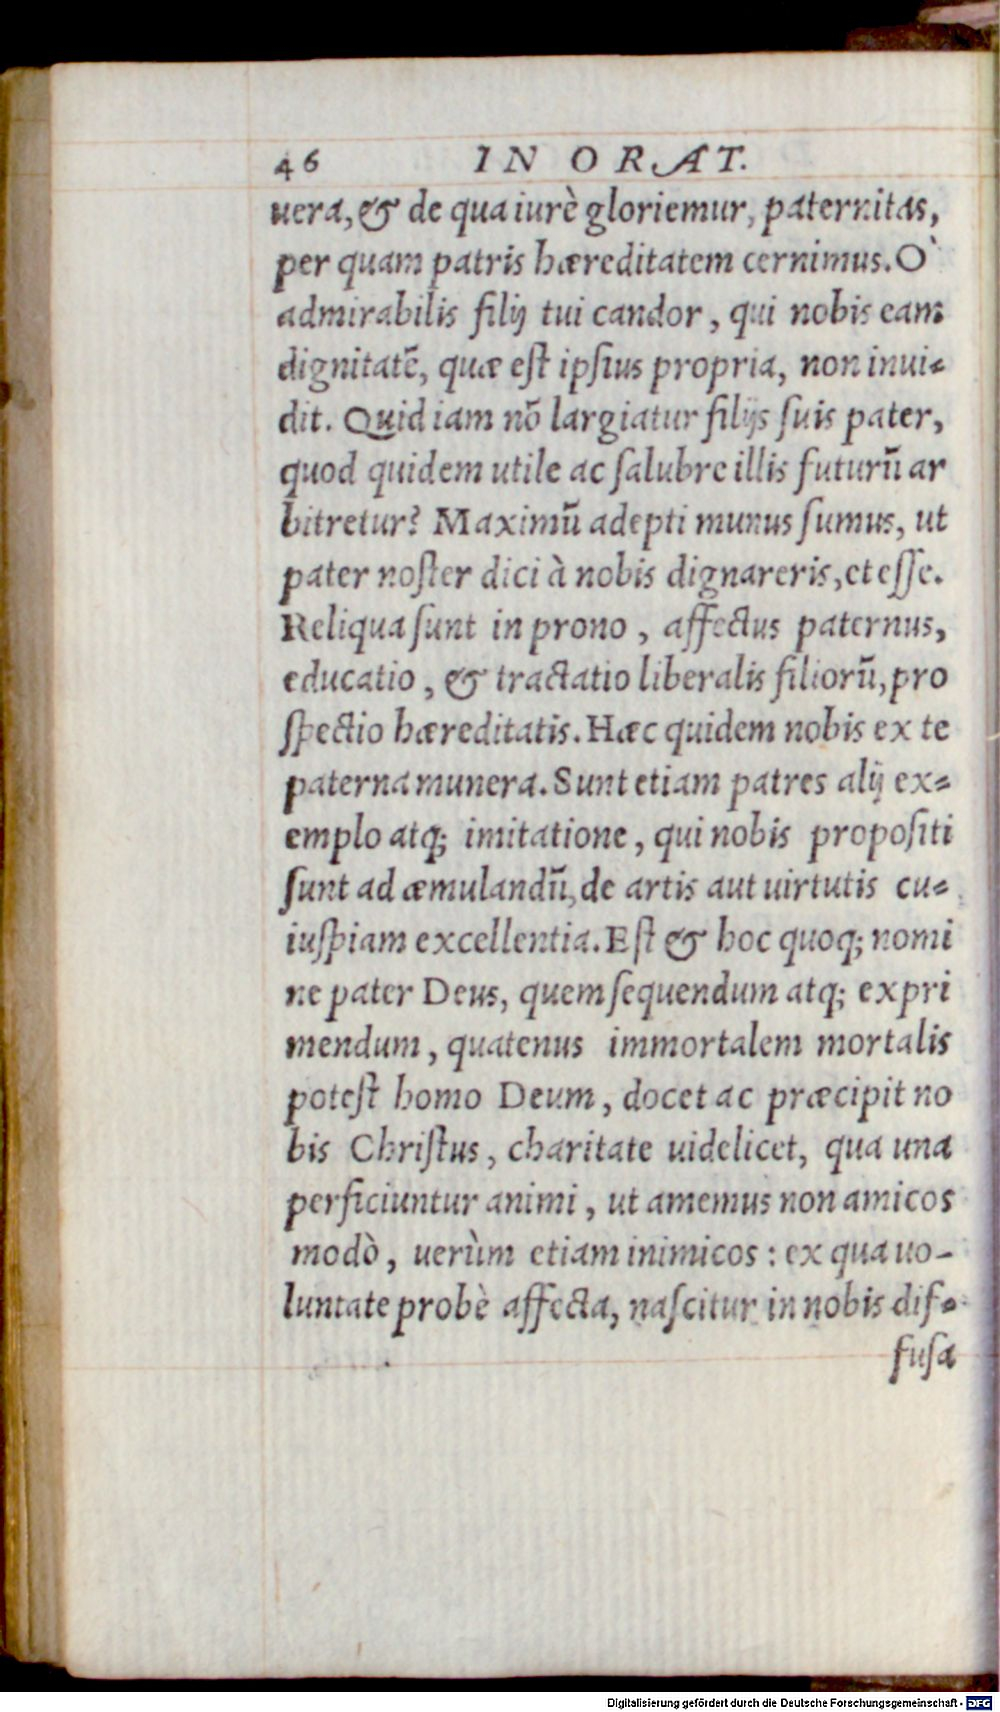 46 IN ORAT.
uera, & de qua iurè gloriemur, paternitas,
per quam patris hæreditatem cernimus. Ò
admirabilis filij tui candor, qui nobis eam
dignitatē, quæ eſt ipſius propria, non inui-
dit. Quid iam nō largiatur filijs ſuis pater,
quod quidem utile ac ſalubre illis futurū ar
bitretur? Maximū adepti munus ſumus, ut
pater noſter dici à nobis dignareris, et eſſe.
Reliqua ſunt in prono, affectus paternus,
educatio, & tractatio liberalis filiorū, pro
ſpectio hæreditatis. Hæc quidem nobis ex te
paterna munera. Sunt etiam patres alij ex-
emplo atq; imitatione, qui nobis propoſiti
ſunt ad æmulandū, de artis aut uirtutis cu-
iuſpiam excellentia. Eſt & hoc quoq; nomi
ne pater Deus, quem ſequendum atq; expri
mendum, quatenus immortalem mortalis
poteſt homo Deum, docet ac præcipit no
bis Chriſtus, charitate uidelicet, qua una
perficiuntur animi, ut amemus non amicos
modò, uerùm etiam inimicos: ex qua uo-
luntate probè affecta, naſcitur in nobis dif-
fuſa
Digitalisierung gefördert durch die Deutsche Forschungsgemeinschaft - DFG